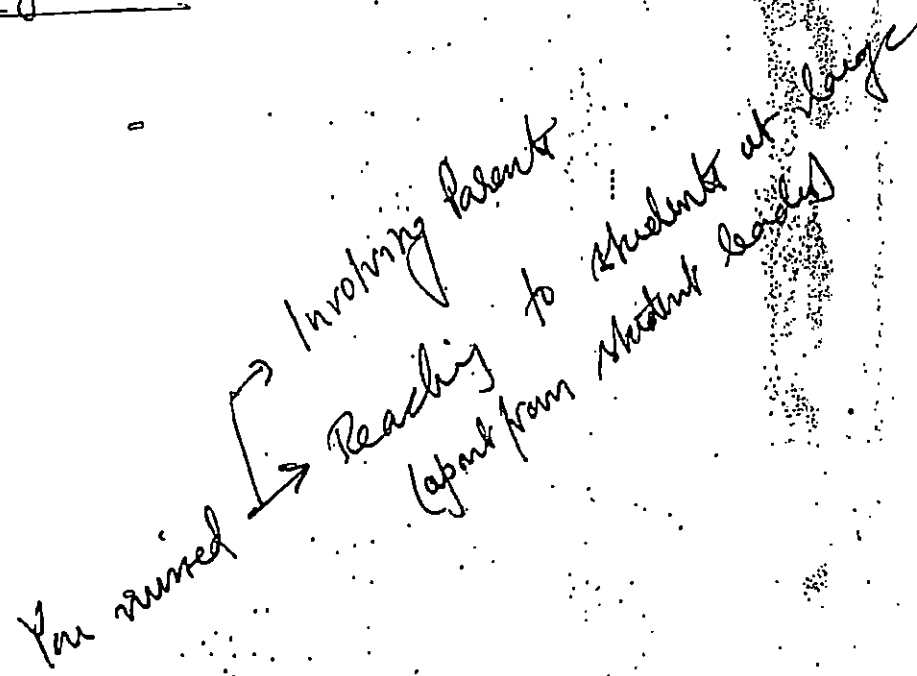 You missed
Involving Parents
Reaching to students at large
(apart from student leaders)